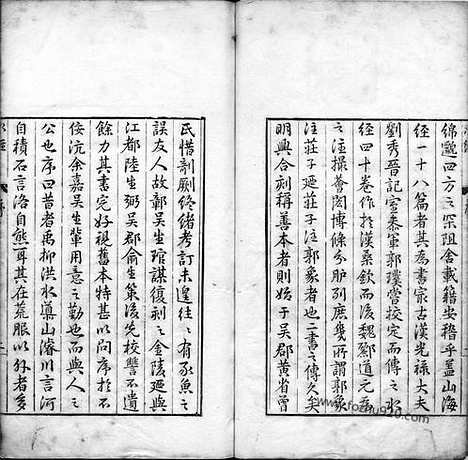 錦邈四方之罙阻舍載籍安稽乎盖山海
經一十八篇者其為書家古漢光祿大夫
劉秀晉記室叅軍郭璞嘗挍定而傳之水
經四十卷作扵漢桑欽而後魏酈道元為
之注撮會閎博條分臚列庶幾所謂郭象
注莊子廼莊子注郭象者也二書之傳久矣
明興合刻稱善本者則始于吳郡黃省曾
氏惜剞劂終緒考訂未遑徃徃有豕魚之
誤友人故鄣吳生琯謀復刻之金陵廼與
江都陸生弼吳郡俞生策後先校讐不遺
餘力其書完好視舊本特甚以問序於不
佞沆余嘉吳生軰用意之勤也而與人之
公也序曰昔者禹抑洪水導山濬川言河
自積石言洛自熊耳其在荒服以外者多
水經
序
www.rozhu910.com